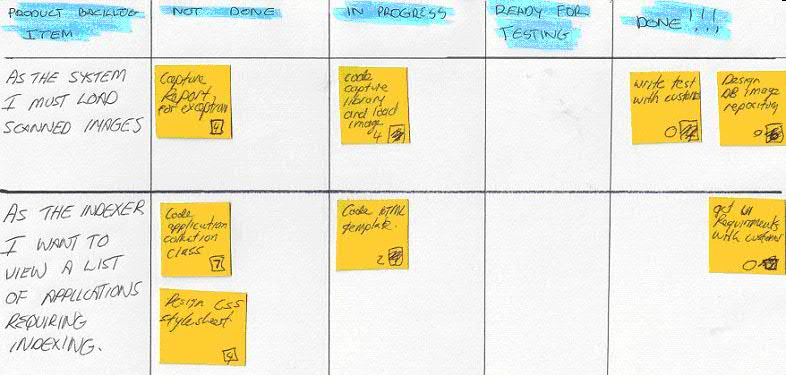 PRODUCT BACKLOG
ITEM
NOT DONE
IN PROGRESS
READY FOR
TESTING
DONE!!!
AS THE SYSTEM
I MUST LOAD
SCANNED IMAGES
Capture
Report
for exception
code
capture
library
and load
image
4
write test
with custom
0
Design
DB image
repository
0
AS THE INDEXER
I WANT TO
VIEW A LIST
OF APPLICATIONS
REQUIRING
INDEXING.
Code
application
collection
class
7
Design CSS
stylesheet
Code HTML
template.
2
get UI
Requirements
with customer
0